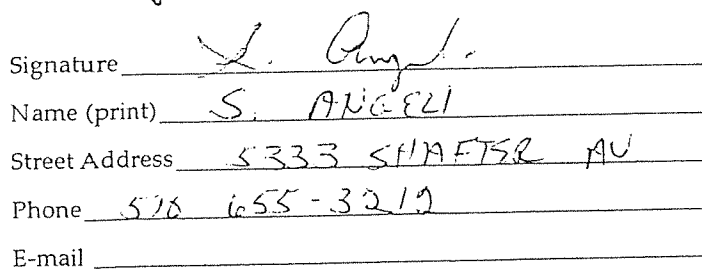 Signature
Name (print) S. ANGELI
Street Address 5333 SHAFTER AV
Phone 510 655-3212
E-mail